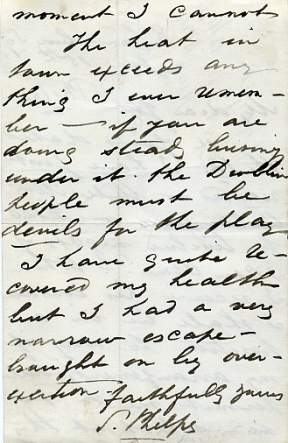 moment I cannot
The heat in
town exceeds any
thing I ever remem-
ber — if you are
doing steady business
under it. The Dublin
people must be
devils for the play
I have quite re-
covered my health
but I had a very
narrow escape -
brought on by over-
exertion - faithfully yours
S. Phelps